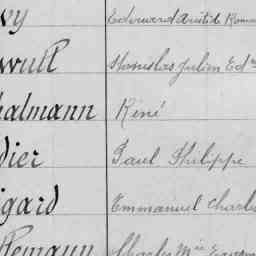 vy Edouard Aristide Roma
wull Stanislas Julien Edm
halmann Réné
dier Paul Philippe
igard Emmanuel Charle
ffemann Charles Mie